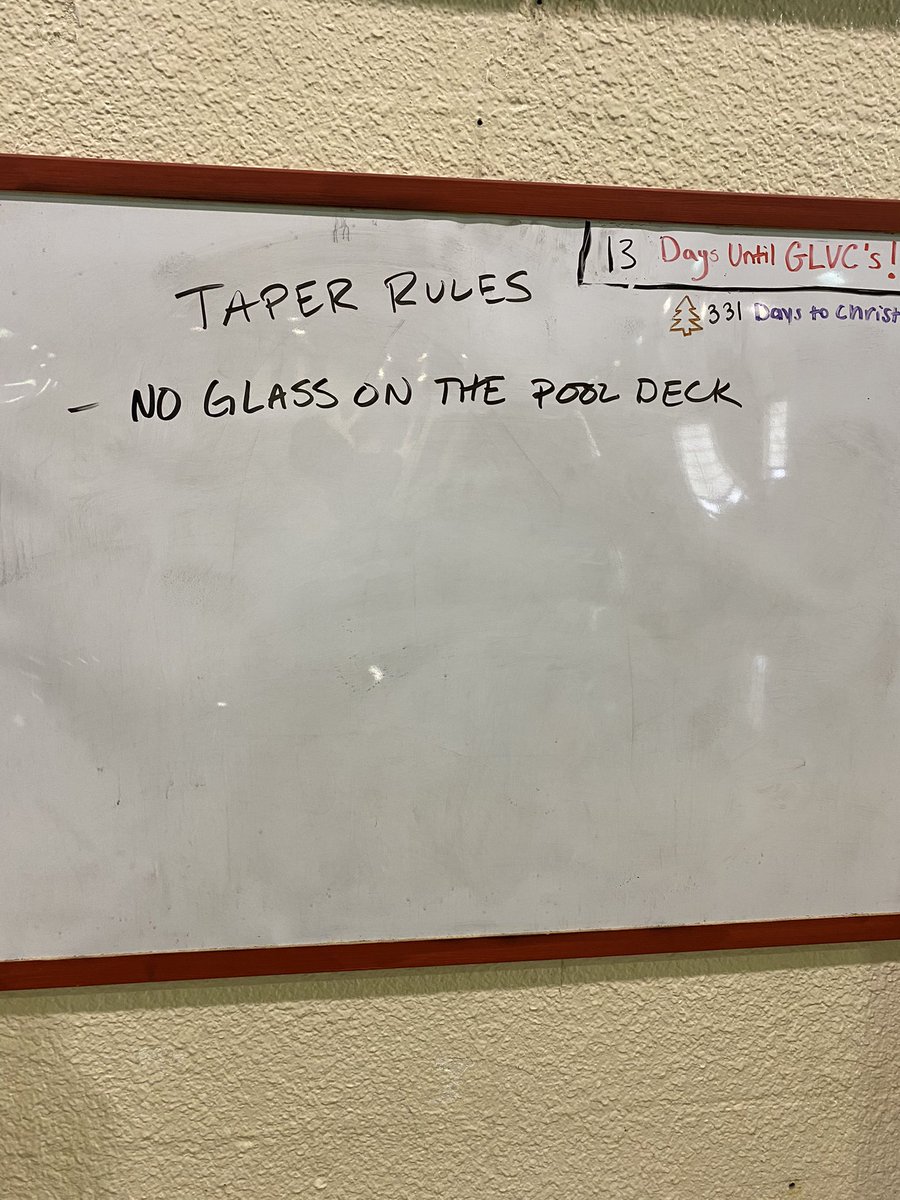 13 Days Until GLVC's!
331 Days to Christ
TAPER RULES
- NO GLASS ON THE POOL DECK